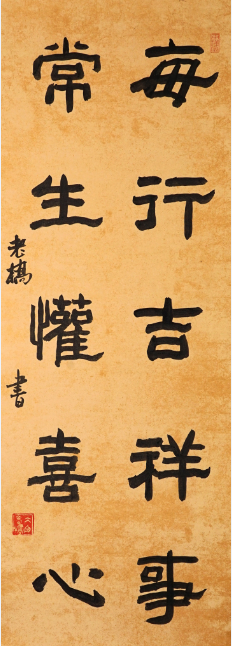 每行吉祥事
常生懽喜心
老橋書